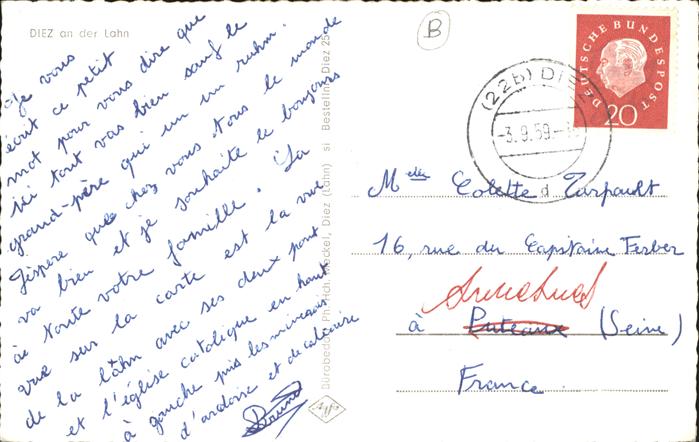 DIEZ an der Lahn
Je vous
écrit ce petit
mot pour vous dire que
ici tout vas bien sauf le
grand-père qui un un ruhm.
J'espère que chez vous tous le monde
va bien et je souhaite le bonjours
à toute votre famille. La
vue sur la carte est la vue
de la lähn avec ses deux pont
et l'église catolique en haut
à gauche puis les
d'ardoise et de calcaire
Bruno
Bestellnr. Diez 25
B
DEUTSCHE BUNDESPOST
20
(22b) DIEZ
-3.9.59.-
d
Melle Colette Turpault
16, rue du Capitaine Ferber
à Puteaux (Seine)
France